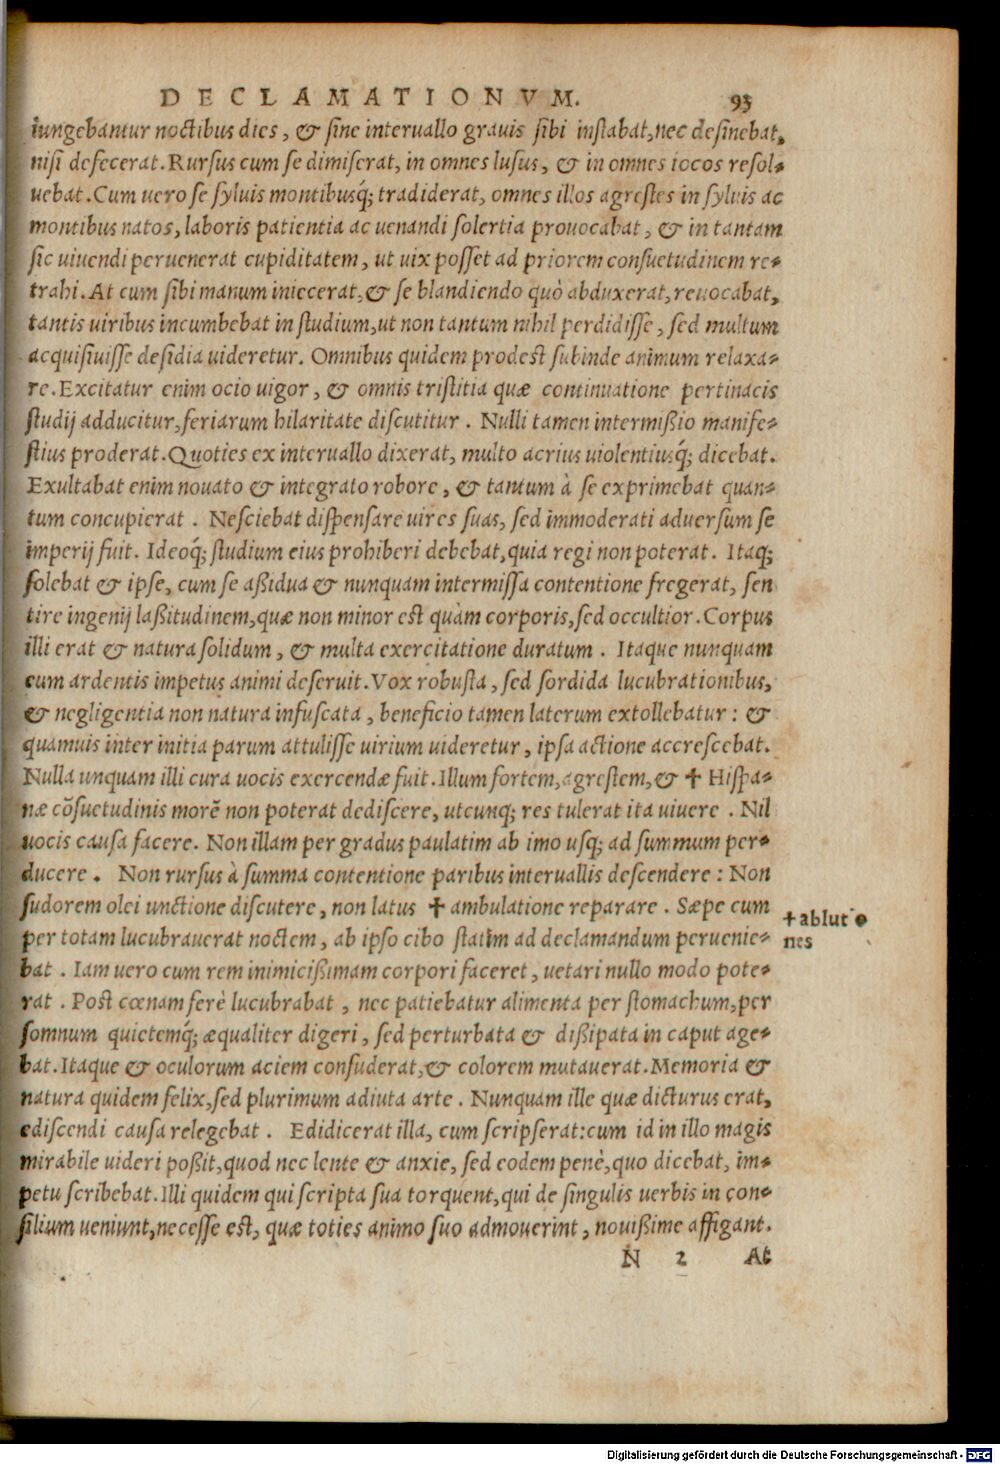 DECLAMATIONVM. 93
iungebantur noctibus dies, & sine interuallo grauis sibi instabat, nec desinebat,
nisi defecerat. Rursus cum se dimiserat, in omnes lusus, & in omnes iocos resol-
uebat. Cum uero se syluis montibusq́; tradiderat, omnes illos agrestes in syluis ac
montibus natos, laboris patientia ac uenandi solertia prouocabat, & in tantam
sic uiuendi peruenerat cupiditatem, ut uix posset ad priorem consuetudinem re-
trahi. At cum sibi manum iniecerat, & se blandiendo quò abduxerat, reuocabat,
tantis uiribus incumbebat in studium, ut non tantum nihil perdidisse, sed multum
acquisiuisse desidia uideretur. Omnibus quidem prodest subinde animum relaxa-
re. Excitatur enim ocio uigor, & omnis tristitia quæ continuatione pertinacis
studij adducitur, feriarum hilaritate discutitur. Nulli tamen intermißio manife-
stius proderat. Quoties ex interuallo dixerat, multo acrius uiolentiusq́; dicebat.
Exultabat enim nouato & integrato robore, & tantum à se exprimebat quan-
tum concupierat. Nesciebat dispensare uires suas, sed immoderati aduersum se
imperij fuit. Ideoq́; studium eius prohiberi debebat, quia regi non poterat. Itaq;
solebat & ipse, cum se aßidua & nunquam intermissa contentione fregerat, sen
tire ingenij laßitudinem, quæ non minor est quàm corporis, sed occultior. Corpus
illi erat & natura solidum, & multa exercitatione duratum. Itaque nunquam
eum ardentis impetus animi deseruit. Vox robusta, sed sordida lucubrationibus,
& negligentia non natura infuscata, beneficio tamen laterum extollebatur: &
quamuis inter initia parum attulisse uirium uideretur, ipsa actione accrescebat.
Nulla unquam illi cura uocis exercendæ fuit. Illum fortem, agrestem, & † Hispa-
næ cõsuetudinis morẽ non poterat dediscere, utcunq; res tulerat ita uiuere. Nil
uocis causa facere. Non illam per gradus paulatim ab imo usq; ad summum per-
ducere. Non rursus à summa contentione paribus interuallis descendere: Non
sudorem olei unctione discutere, non latus † ambulatione reparare. Sæpe cum
† ablutio
nes
per totam lucubrauerat noctem, ab ipso cibo statim ad declamandum peruenie-
bat. Iam uero cum rem inimicißimam corpori faceret, uetari nullo modo pote-
rat. Post cœnam ferè lucubrabat, nec patiebatur alimenta per stomachum, per
somnum quietemq́; æqualiter digeri, sed perturbata & dißipata in caput age-
bat. Itaque & oculorum aciem confuderat, & colorem mutauerat. Memoria &
natura quidem felix, sed plurimum adiuta arte. Nunquam ille quæ dicturus erat,
ediscendi causa relegebat. Edidicerat illa, cum scripserat: cum id in illo magis
mirabile uideri poßit, quod nec lente & anxie, sed eodem penè, quo dicebat, im-
petu scribebat. Illi quidem qui scripta sua torquent, qui de singulis uerbis in con-
silium ueniunt, necesse est, quæ toties animo suo admouerint, nouißime affigant.
N 2 At
Digitalisierung gefördert durch die Deutsche Forschungsgemeinschaft - DFG